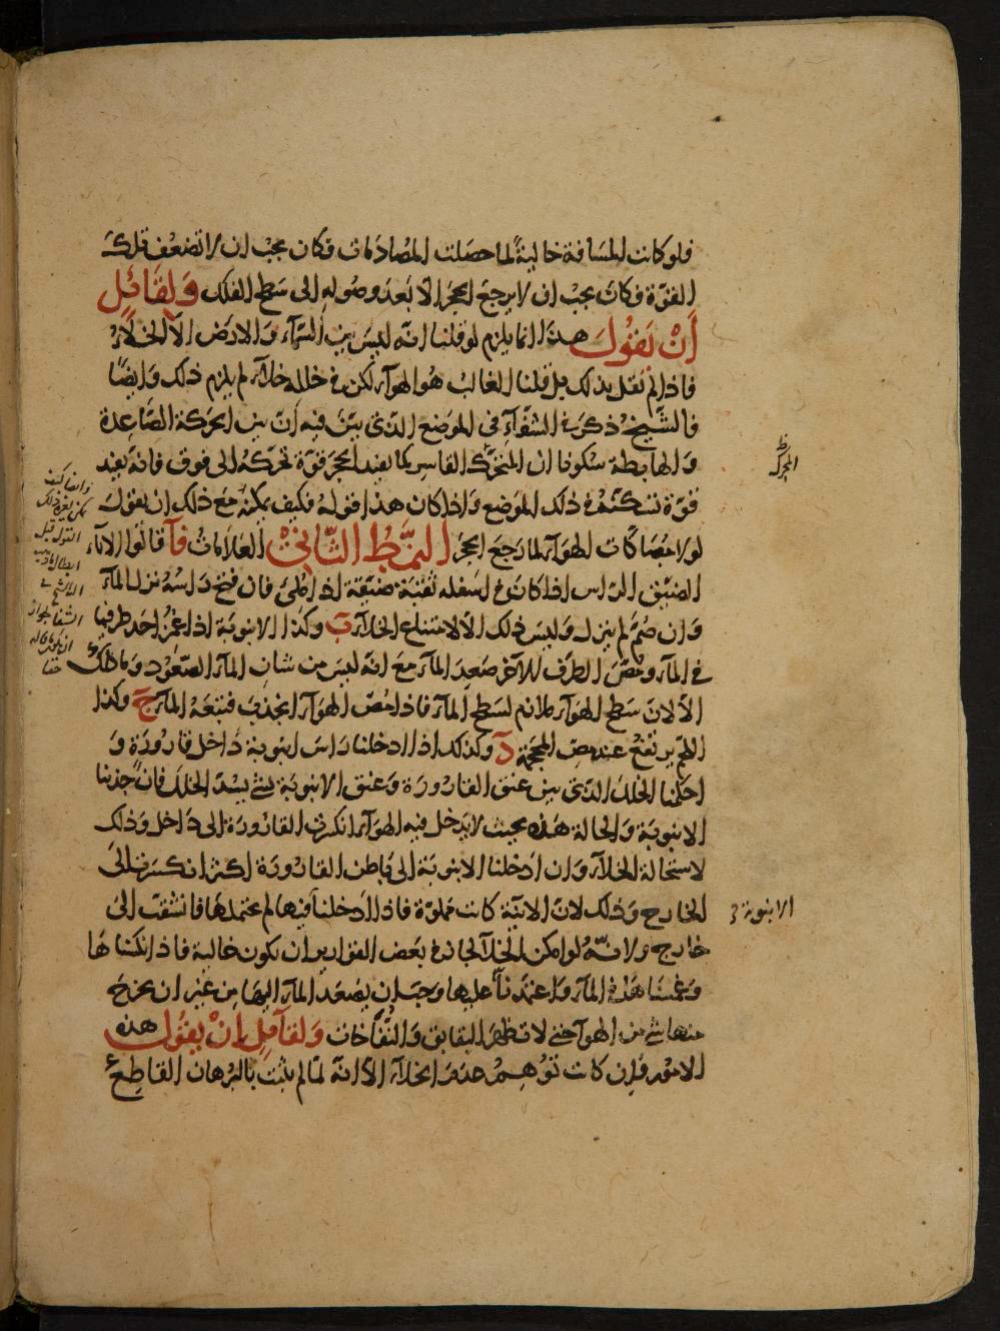 فلو كانت المسافة خالية لما حصلت المصادمات وكان يجب ان لا تضعف تلك
القوة فكان يجب ان لا يرجع الحجر الا بعد وصوله الى سطح الفلك ولقائل
أن يقول هذا انما يلزم لو قلنا انه ليس بين السماء والارض الا الخلاء
فاذا لم نقل بذلك بل قلنا الغالب هو الهواء لكن في خلله خلاء لم يلزم ذلك وايضا
فالشيخ ذكر في الشفاء في الموضع الذي بين فيه ان بين الحركة الصاعدة
والهابطة سكونا ان المتحرك القاسر كما يفيد الحجر قوة تحركه الى فوق فانه يفيد
قوة تسكنه في ذلك الموضع واذا كان هذا قوله فكيف يمكنه مع ذلك ان يقول
لولا مصاكات الهواء لما رجع الحجر النمط الثاني العلامات فآ قالوا الاناء
الضيق الراس اذا كان في اسفله ثقبة ضيقة اذا ملئ فان فتح راسه نزل الماء
وان ضم لم ينزل وليس ذلك الا لامتناع الخلاء ب وكذا الانبوبة اذا غمر احد طرفيها
في الماء ومص الطرف الاخر صعد الماء مع انه ليس من شان الماء الصعود وما ذلك
الا لان سطح الهواء ملازم لسطح الماء فاذا مص الهواء انجذب فتبعه الماء ج وكذا
اللحم يرتفع عند مص المحجمة د وكذلك اذا ادخلنا راس انبوبة داخل قارورة و
احكمنا الخلل الذي بين عنق القارورة وعنق الانبوبة بشئ يسد الخلل فان جذبنا
الانبوبة والحالة هذه بحيث لا يدخل فيه الهواء انكسرت القارورة الى داخل وذلك
لاستحالة الخلاء وان ادخلنا الانبوبة الى باطن القارورة اكثر انكسرت الى
الخارج وذلك لان الانية كانت مملوة فاذا ادخلنا فيها لم يحتملها فانشقت الى
خارج ولانه لو امكن الخلاء لجاز في بعض القوارير ان يكون خالية فاذا نكسناها
وغمسناها في الماء واعتمدنا عليها وجب ان يصعد الماء اليها من غير ان يخرج
منها شئ من الهواء حتى لا تظهر البقابق والنفاخات ولقائل ان يقول هذه
الامور وان كانت توهم عدم الخلاء الا انه لما لم يثبت بالبرهان القاطع
المحرك ظ
الانبوبة
وايضا كيف
يمكن لغير ذلك
القول قبل
ابطال
الشفا بجواز